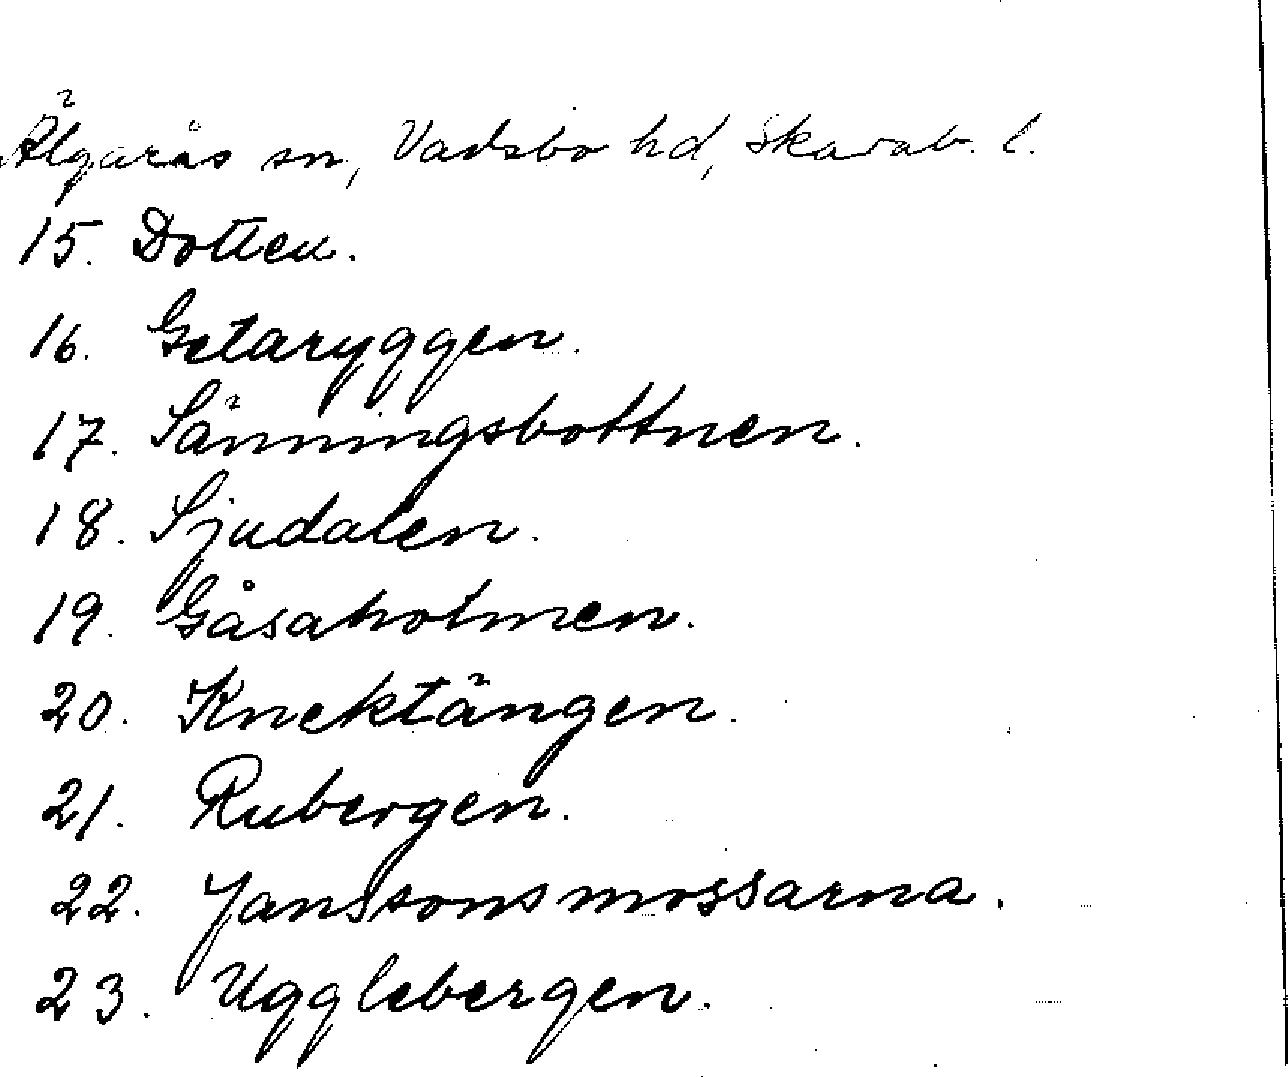 Älgarås sn, Vadsbo hd, Skarab. l.
15. Dotten.
16. Getaryggen.
17. Sänningsbottnen.
18. Sjudalen.
19. Gåsaholmen.
20. Knektängen.
21. Rubergen.
22. Janssonsmossarna.
23. Ugglebergen.